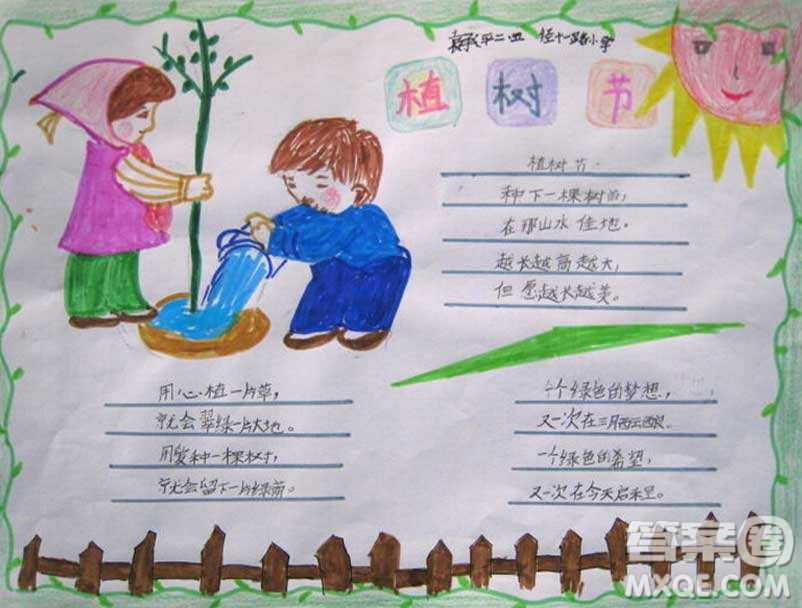 二四 经十一路小学
植树节
植树节
种下一棵树苗,
在那山水佳地。
越长越高越大,
但愿越长越美。
用心植一片草,
就会翠绿一片大地。
用爱种一棵树,
就会留下一片绿荫。
一个绿色的梦想,
又一次在三月酝酿
一个绿色的希望,
又一次在今天启程。
答案圈
MXQE.COM